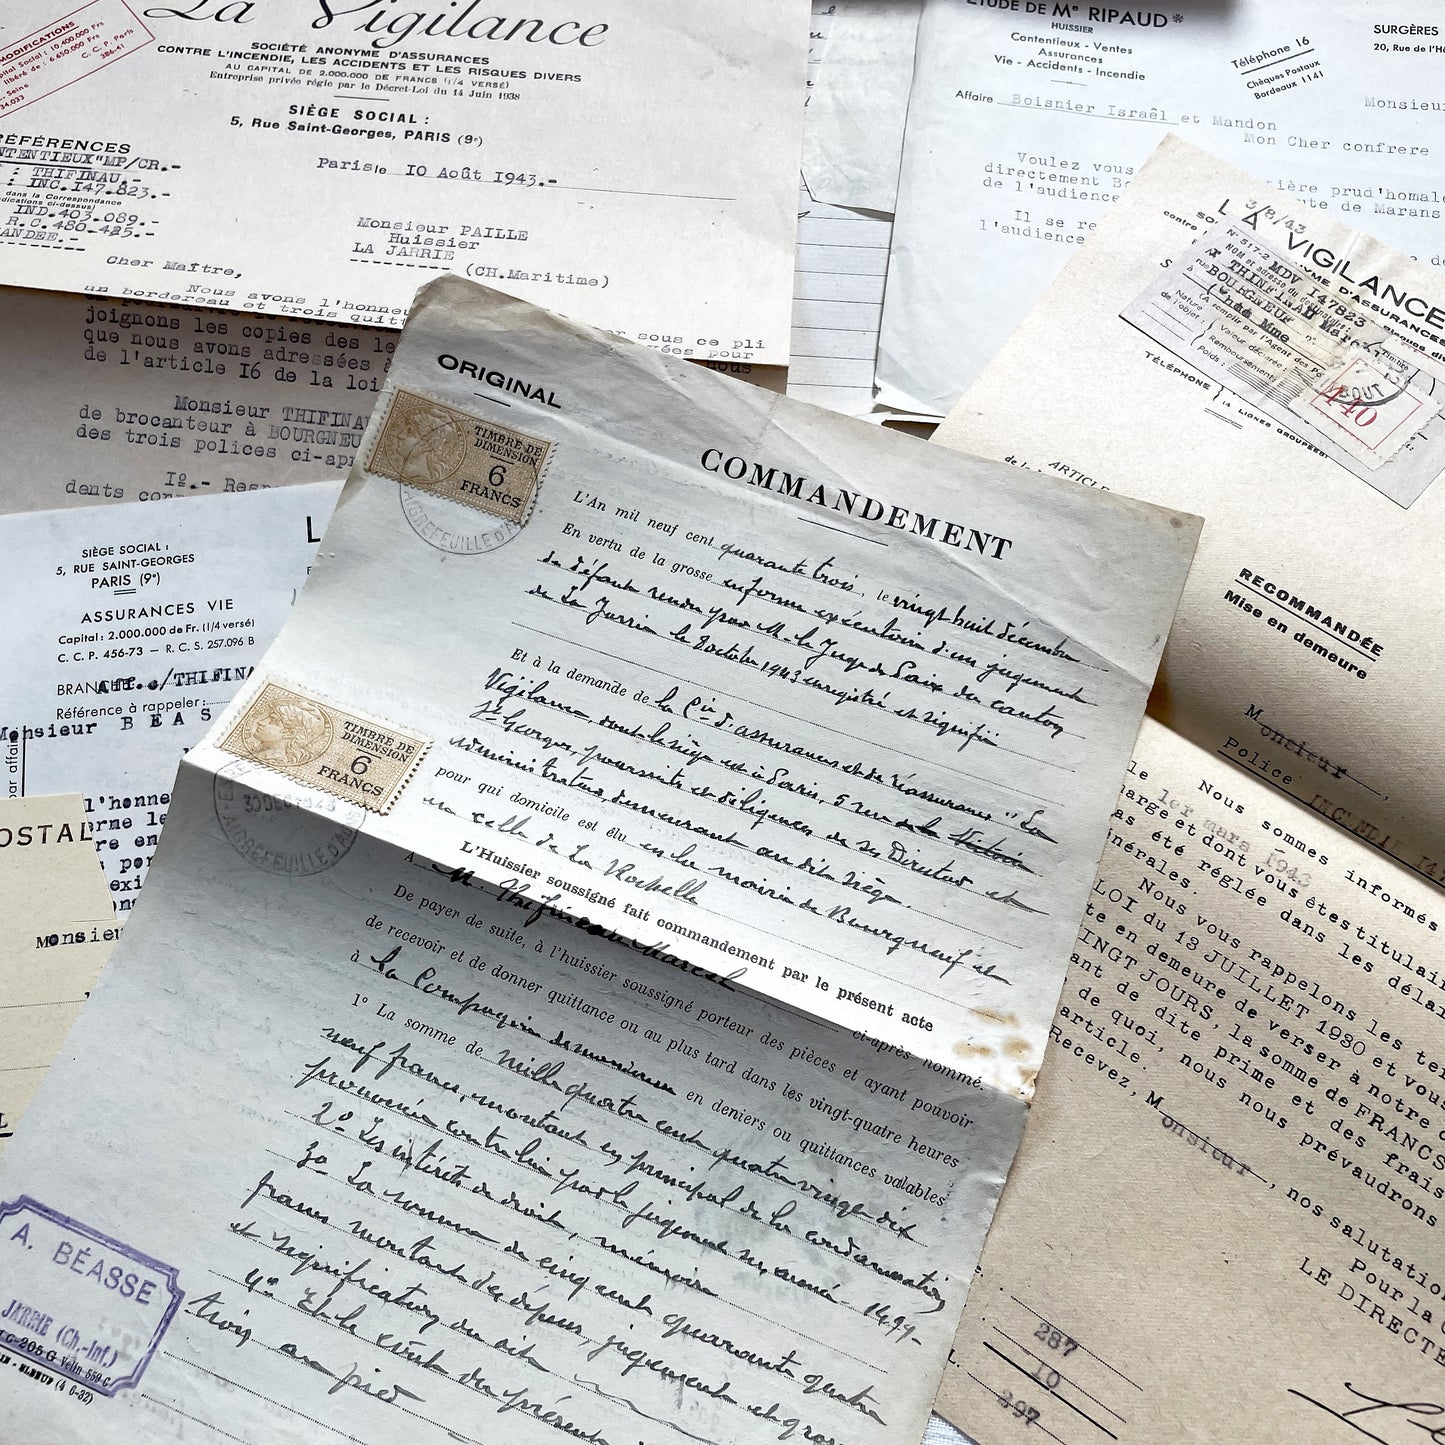 La Vigilance
SOCIÉTÉ ANONYME D'ASSURANCES
CONTRE L'INCENDIE, LES ACCIDENTS ET LES RISQUES DIVERS
AU CAPITAL DE 2.000.000 DE FRANCS (1/4 VERSÉ)
Entreprise privée régie par le Décret-Loi du 14 Juin 1938
SIÈGE SOCIAL :
5, Rue Saint-Georges, PARIS (9e)
MODIFICATIONS
Social : 10.400.000 Frs
libéré de : 6.650.000 Frs
C. C. P. Paris
386-41
Seine
34.033
RÉFÉRENCES
"MP/CR.-
: THIFINAU.-
: INC.147.823.-
dans la Correspondance
IND.403.089.-
R.C. 480-425.-
Paris le 10 Août 1943.-
Monsieur PAILLE
Huissier
LA JARRIE
(CH.Maritime)
Cher Maître,
Nous avons l'honneur
un bordereau et trois
sous ce pli
pour
nous
joignons les copies des
que nous avons adressées
de l'article 16 de la loi
Monsieur THIFINAU
de brocanteur à BOURGNEU
des trois polices ci-
Iº.- Resp
dents
ÉTUDE DE Me RIPAUD
HUISSIER
Contentieux - Ventes
Assurances
Vie - Accidents - Incendie
SURGÈRES
20, Rue de l'Hô
Téléphone 16
Chèques Postaux
Bordeaux 1141
Affaire Boisnier Israël et Mandon
Monsieu
Mon Cher confrere
Voulez vous
directement
ière prud'homale
de l'audience
ute de Marans
Il se re
l'audience
3/8/43
LA VIGILANCE
D'ASSURANCES
N° 517-2 MDV 147823
Nom et adresse du destinataire :
BOURGNEUF
Nature
de l'objet :
(A remplir par l'Agent des
Valeur déclarée :
Remboursement
Poids :
AOUT
440
TÉLÉPHONE
14 LIGNES GROUPÉES
ARTICLE
RECOMMANDÉE
Mise en demeure
Monsieur,
Police INCENDIE 147
Nous sommes informés
le 1er mars 1943
arge et dont vous êtes titulaire
as été réglée dans les délais
nérales.
Nous vous rappelons les ter
LOI du 13 JUILLET 1930 et vous
te en demeure de verser à notre
INGT JOURS, la somme de FRANCS
ant de dite prime et des frais
de quoi, nous nous prévaudrons
article.
Recevez, Monsieur, nos salutations
Pour la
LE DIRECTE
287
10
297
SIÈGE SOCIAL :
5, RUE SAINT-GEORGES
PARIS (9e)
ASSURANCES VIE
Capital : 2.000.000 de Fr. (1/4 versé)
C. C. P. 456-73 — R. C. S. 257.096 B
BRANCHE Aff. c/THIFINA
Référence à rappeler :
Monsieur BEAS
par affaire
l'honne
OSTAL
Monsieu
ORIGINAL
TIMBRE DE
DIMENSION
6
FRANCS
AIGREFEUILLE D'A
COMMANDEMENT
L'An mil neuf cent quarante trois, le vingt huit décembre
En vertu de la grosse en forme exécutoire d'un jugement
de défaut rendu par M. le Juge de Paix du canton
de La Jarrie le 8 octobre 1943 enregistré et signifié
Et à la demande de la Cie d'assurances et de réassurances "La
Vigilance, dont le siège est à Paris, 5 rue de la Victoire
St Georges, poursuites et diligences de ses Directeur et
administrateurs, demeurant au dit siège.
pour qui domicile est élu en la mairie de Bourgneuf et
en celle de La Rochelle
TIMBRE DE
DIMENSION
6
FRANCS
30 DEC 1943
AIGREFEUILLE D'A
L'Huissier soussigné fait commandement par le présent acte
A M. Thifineau Marcel
ci-après nommé.
De payer de suite, à l'huissier soussigné porteur des pièces et ayant pouvoir
de recevoir et de donner quittance ou au plus tard dans les vingt-quatre heures
à La Compagnie demanderesse en deniers ou quittances valables
1° La somme de mille quatre cent quatre vingt dix
neuf francs, montant en principal de la condamnation
prononcée contre lui par le jugement sus énoncé 1499-
2° Les intérêts de droit, mémoire
3° La somme de cinq cent quarante quatre
francs montant des dépens, jugement et grosse
et signification du dit
4° Et le coût du présent
trois au pied
A. BÉASSE
JARRIE (Ch.-Inf.)